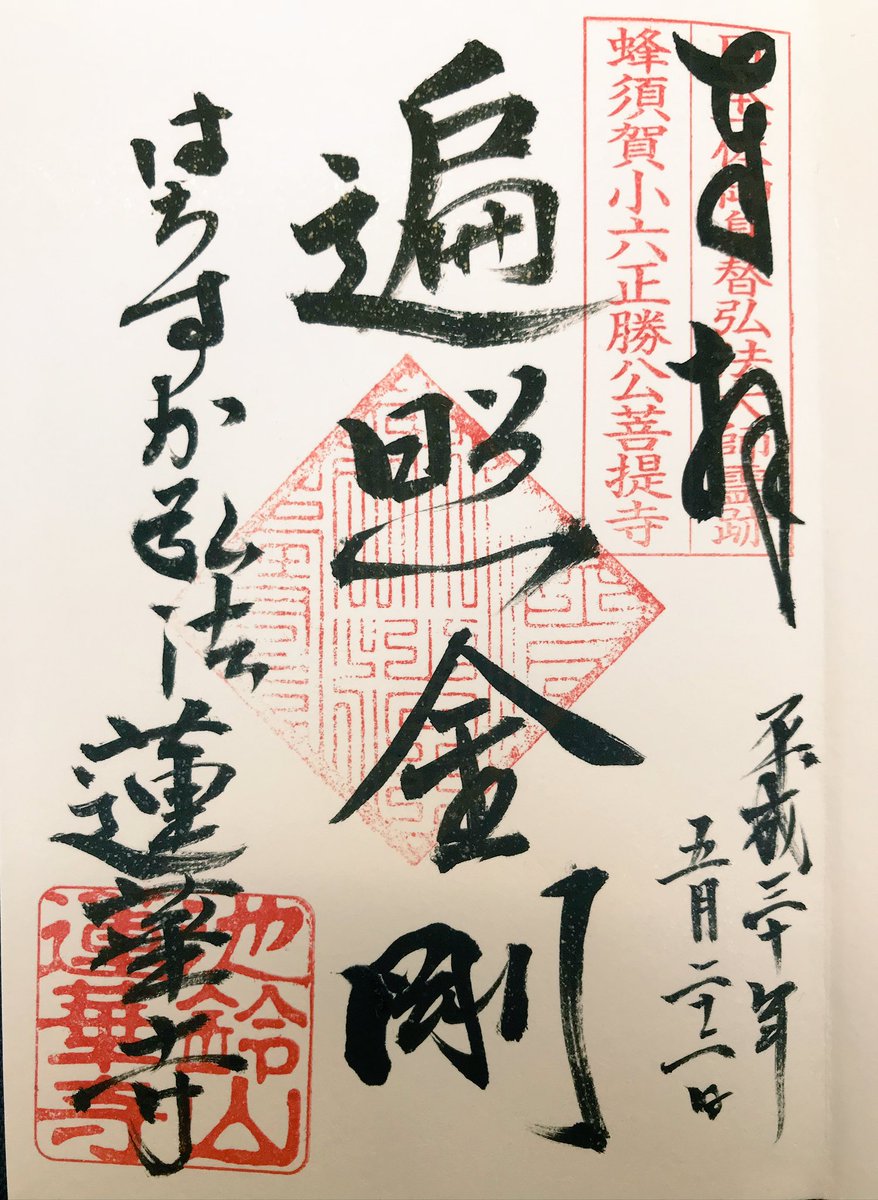 奉拝
御身替弘法大師霊跡
蜂須賀小六正勝公菩提寺
平成三十年
五月二十二日
遍照金剛
はちすか弘法 蓮華寺
池鈴山
蓮華寺